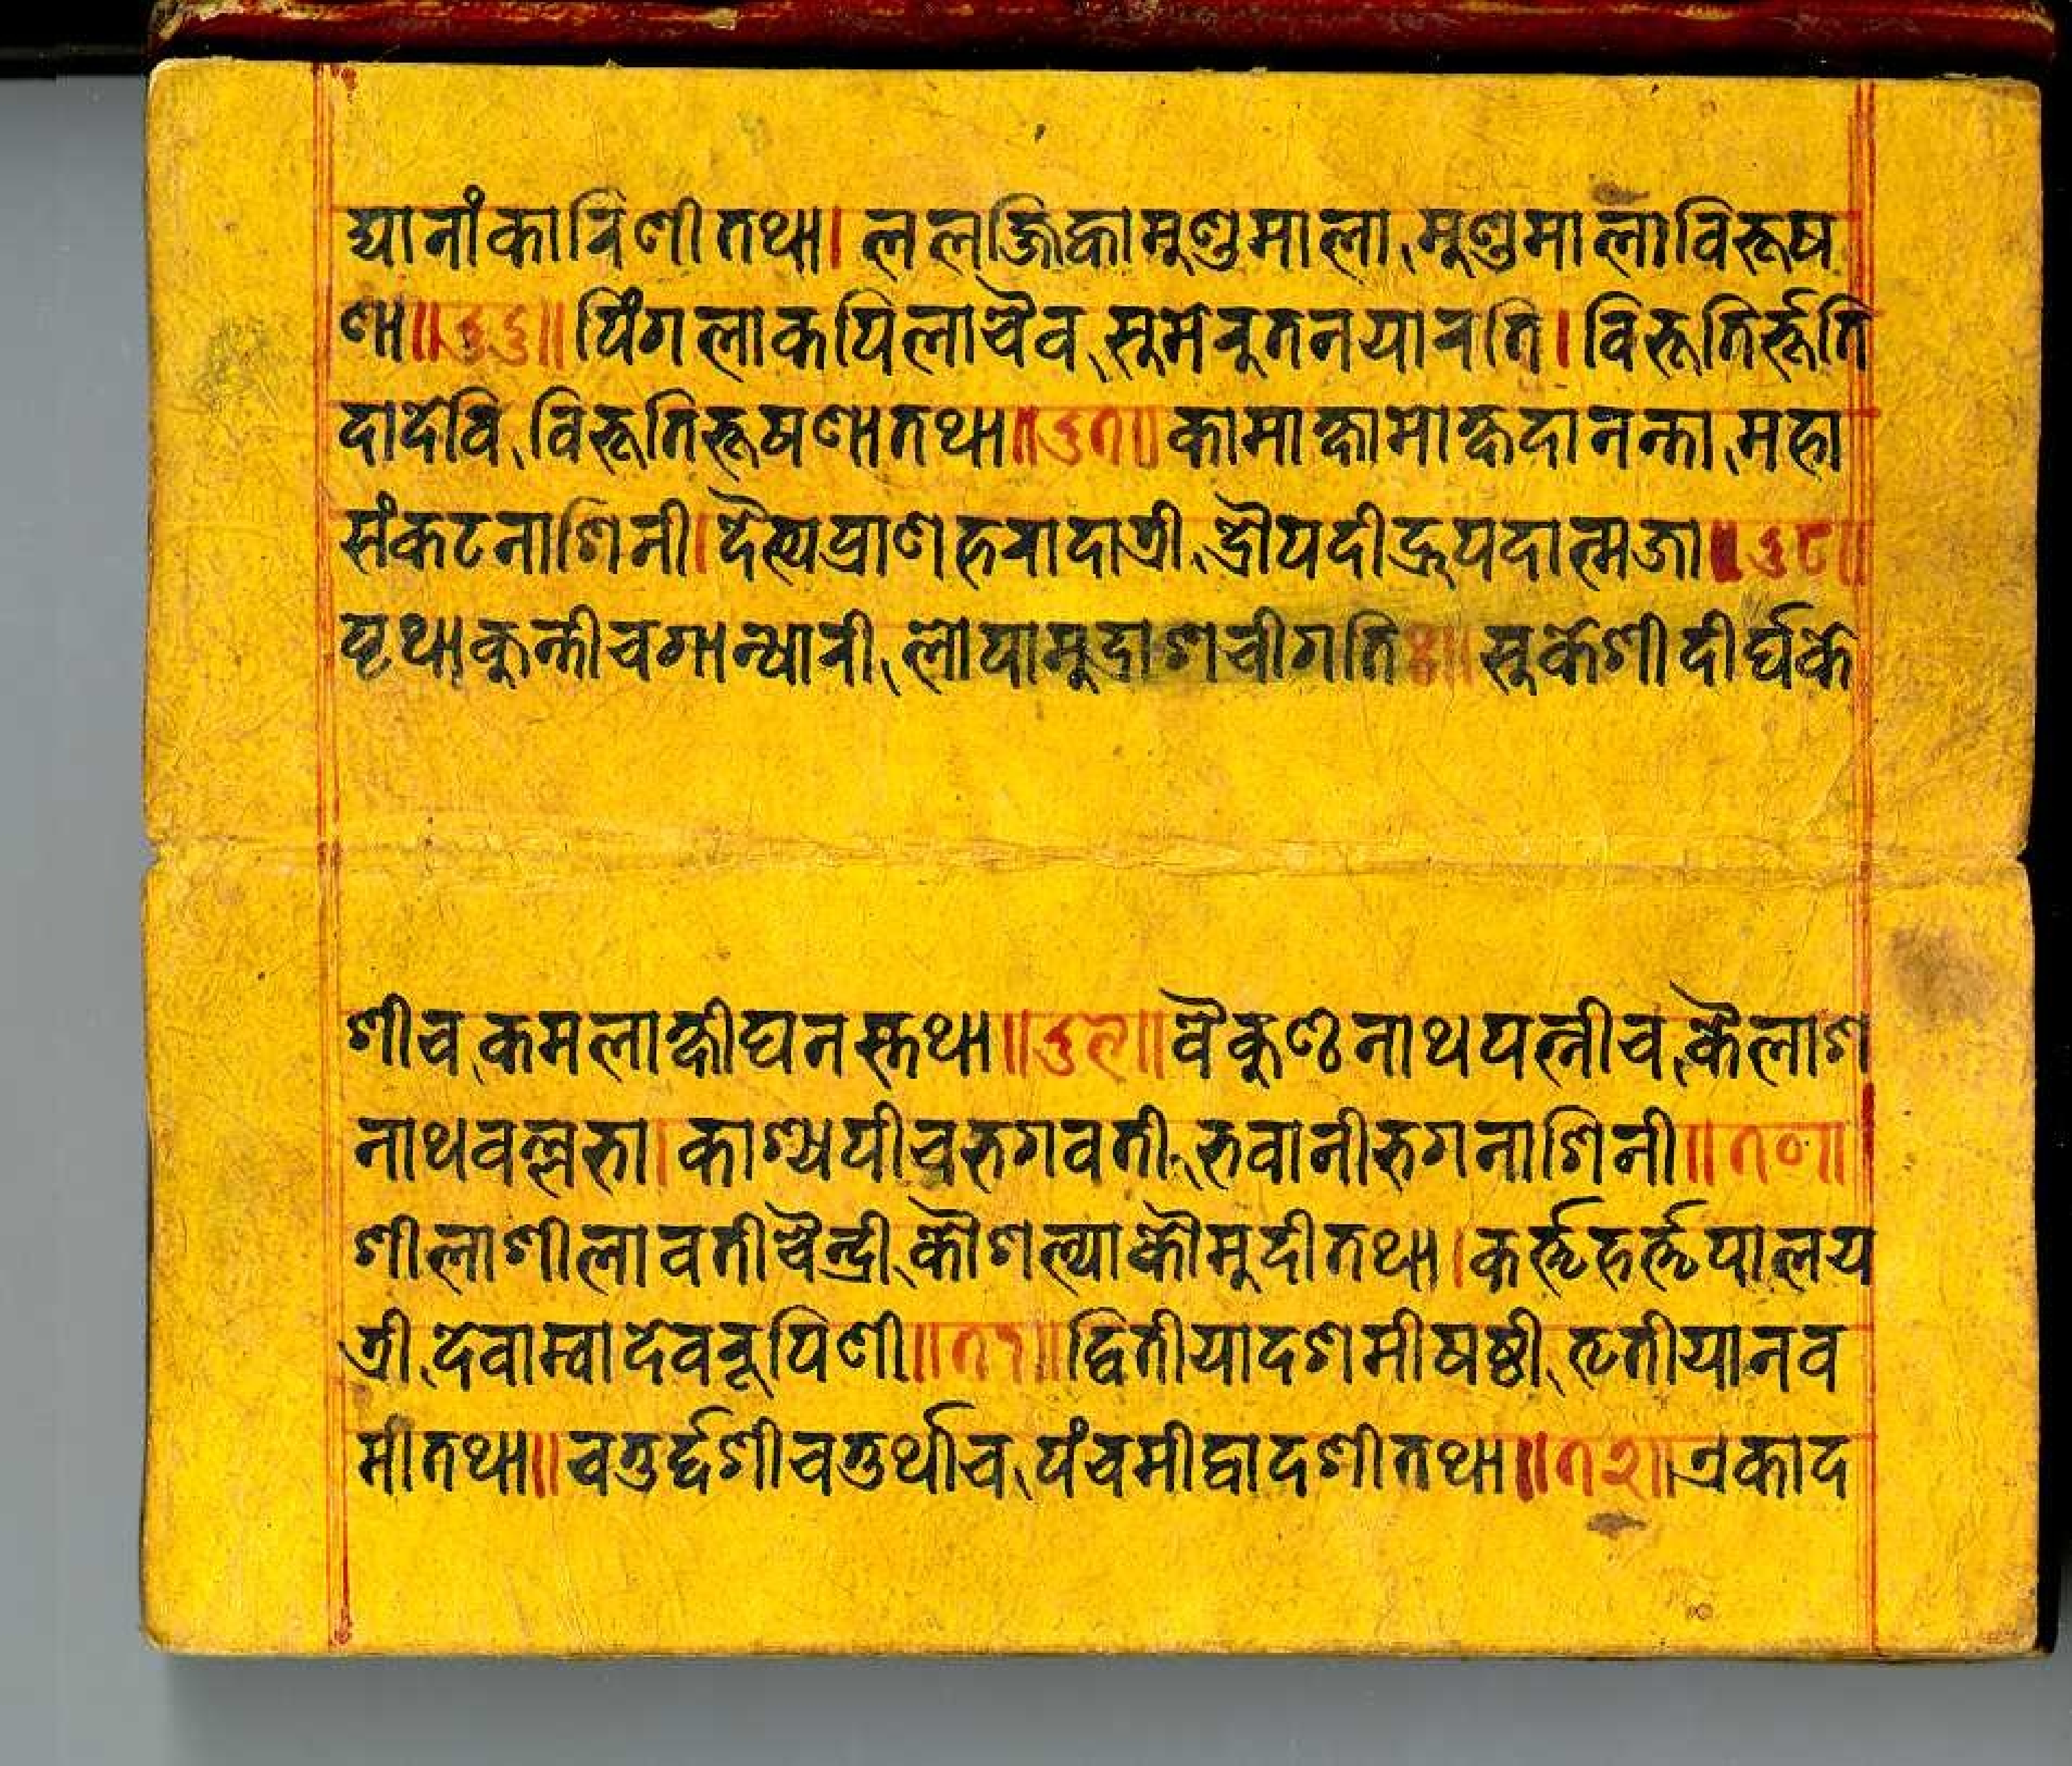 द्यानांकारिणीतथा। ललज्जिह्वामुण्डमाला, मुण्डमालाविभूष
णा॥६६॥ पिंगलाकपिलाचैव, सुमेरुतनयारति। विभूतिर्भूति
दादेवि, विभूतिभूषणातथा॥६७॥ कामाक्षामोक्षदानन्ता, महा
संकटनाशिनी। दैत्यप्राणहरादात्री, द्रौपदीद्रुपदात्मजा॥६८॥
पृथा,कुन्तीचगान्धारी, लोपामुद्राशचीगति॥ सुकेशीदीर्घके
शीच, कमलाक्षीघनस्तथा॥६९॥ वैकुण्ठनाथपत्नीच, कैलाश
नाथवल्लभा। काश्यपीचभगवती, भवानीभगनाशिनी॥७०॥
शीलाशीलावतीचैन्द्री, कौशल्याकौमुदीतथा। कर्त्तृहर्त्तृपालय
त्री, देवाम्वादेवरूपिणी॥७१॥ द्वितीयादशमीषष्ठी, तृतीयानव
मीतथा॥ चतुर्द्दशीचतुर्थीच, पंचमीद्वादशीतथा॥७२॥ एकाद